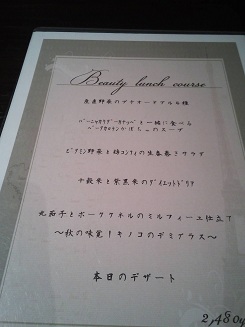 Beauty lunch course
農産野菜のプチオードブル4種
バーニャカウダーカナッペと一緒に食べる
のスープ
ビタミン野菜と鶏コンフィの生春巻きサラダ
十穀米と紫黒米のダイエットドリア
丸茄子とポークフィレのミルフィーユ仕立て
〜秋の味覚!キノコのデミグラス〜
本日のデザート
2,480